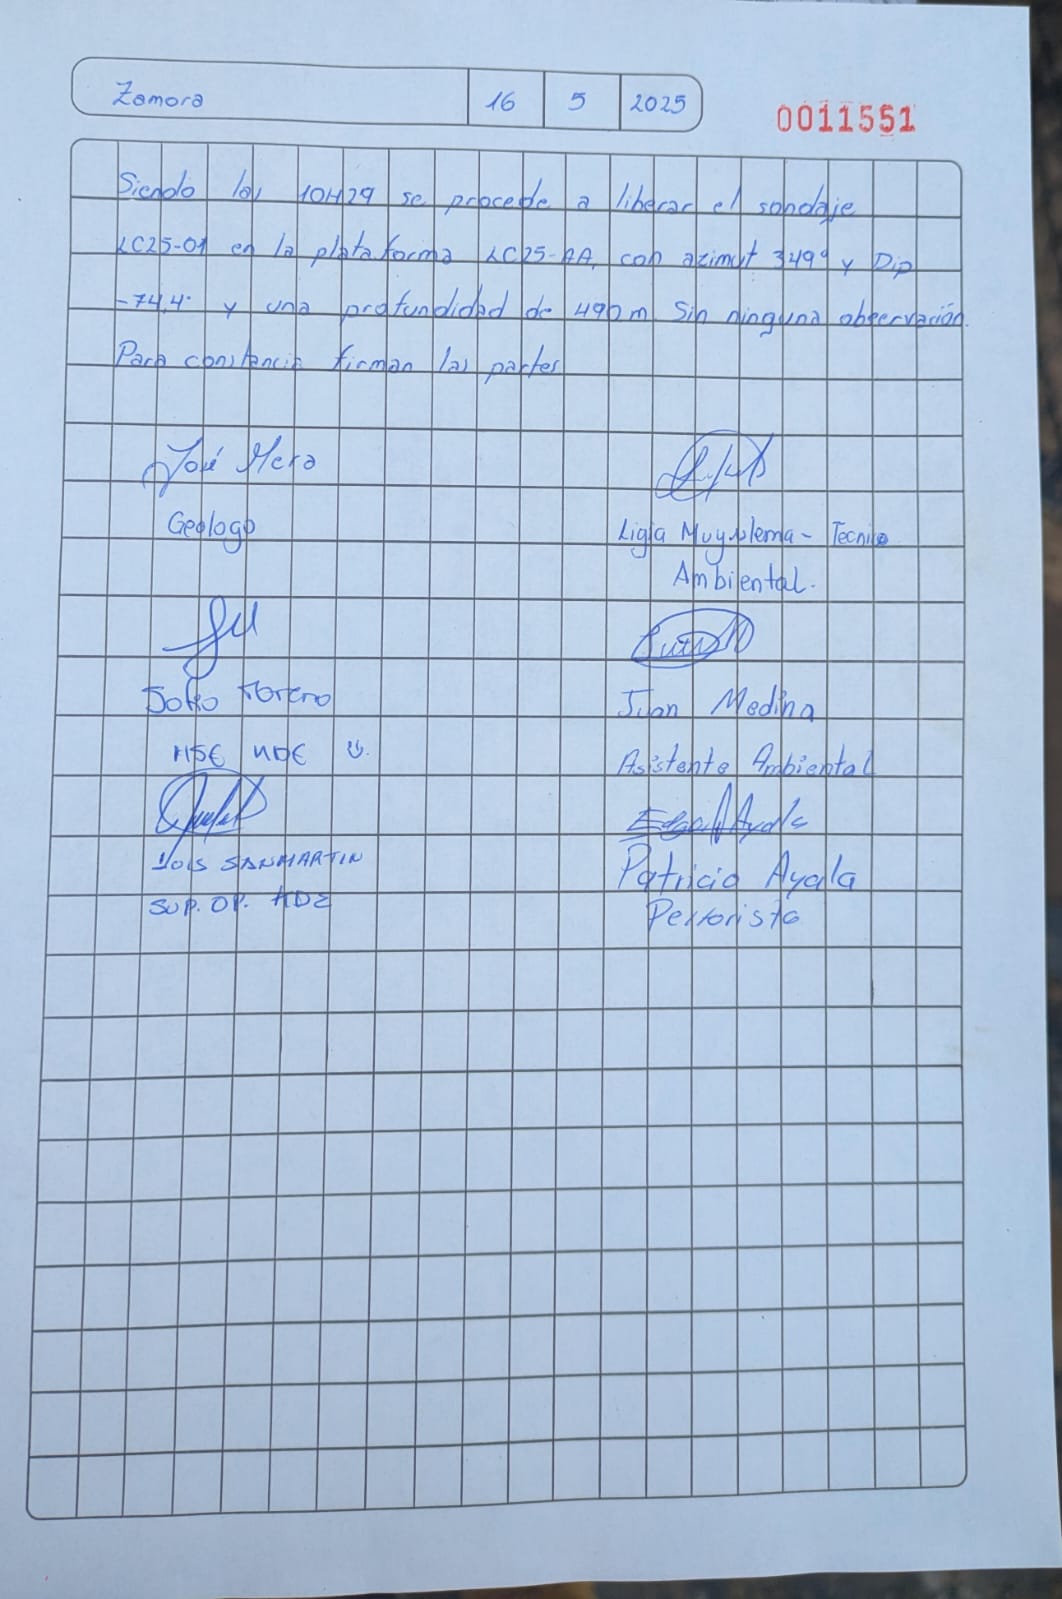 Zamora 16 5 2025
0011551
Siendo las 10H29 se procede a liberar el sondaje
LC25-01 en la plataforma LC25-AA, con azimut 349° y Dip
-74,4° y una profundidad de 490m Sin ninguna observación.
Para constancia firman las partes
José Mera
Geologo
Ligia Muyulema - Tecnico
Ambiental.
Moreno
HSE
Juan Medina
Asistente Ambiental
Luis SANMARTIN
SUP. OP.
Ayala
Patricio Ayala
Perforista